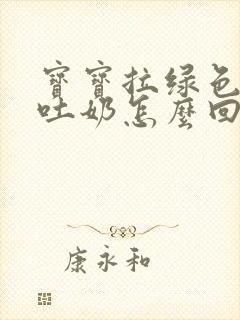 寶寶拉绿色
吐奶怎麼回
康永和